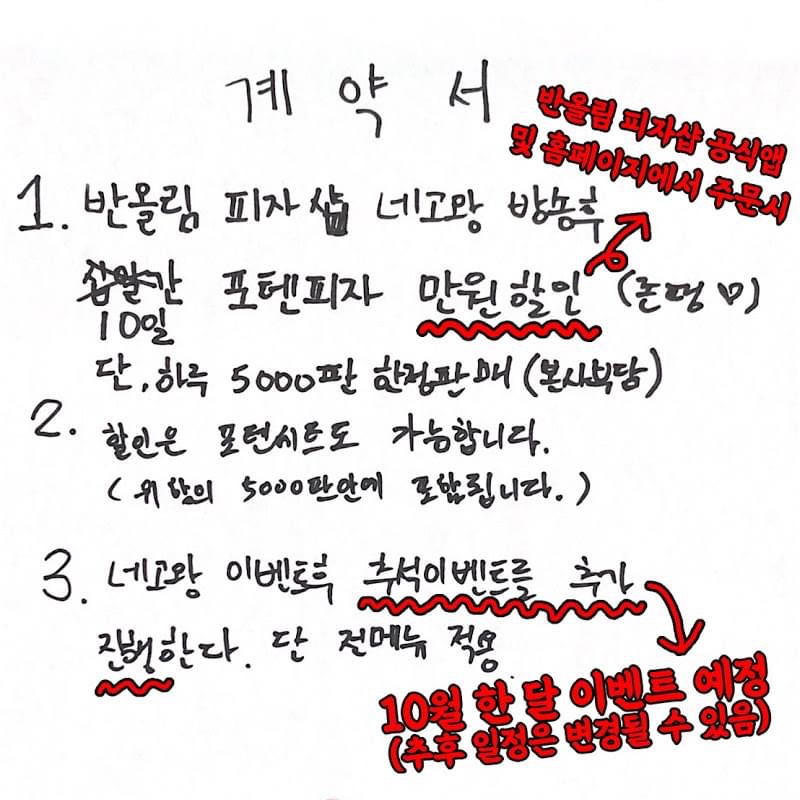 계약서
반올림 피자샵 공식앱
및 홈페이지에서 주문시
1. 반올림 피자샵 네고왕 방송후
10일간 포텐피자 만원할인 (존멍♡)
단, 하루 5000판 한정판매 (본사부담)
2. 할인은 포텐시트도 가능합니다.
(위 합의 5000판안에 포함됩니다.)
3. 네고왕 이벤트후 추석이벤트를 추가
진행한다. 단 전메뉴 적용
10월 한 달 이벤트 예정
(추후 일정은 변경될 수 있음)